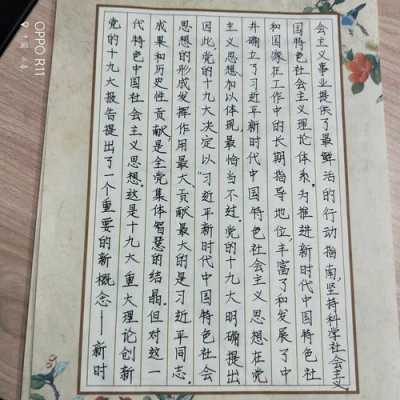 党的十九大报告提出了一个重要的新概念——新时
代特色中国社会主义思想。这是十九大重大理论创新
成果和历史性贡献,是全党集体智慧的结晶。但对这一
思想的形成发挥作用最大、贡献最大的是习近平同志。
因此,党的十九大决定以“习近平新时代中国特色社会
主义思想加以体现最恰当不过。党的十九大明确提出
并确立了习近平新时代中国特色社会主义思想在党
和国家在工作中的长期指导地位,丰富了和发展了中
国特色社会主义理论体系。为推进新时代中国特色社
会主义事业提供了最鲜活的行动指南,坚持科学社会主义
OPPO R11